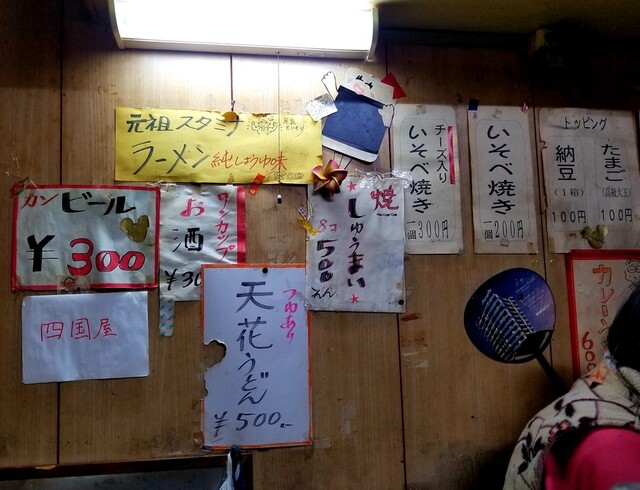 元祖スタミナ
ラーメン 純しょうゆ味
カンビール
¥300
ワンカップ
お酒
¥30
四国屋
つゆあり
天花うどん
¥500
焼
しゅうまい
8コ
500えん
チーズ入り
いそべ焼き
一個300円
いそべ焼き
一個200円
トッピング
たまご
100円
納豆
(1箱)
100円
カレー
600